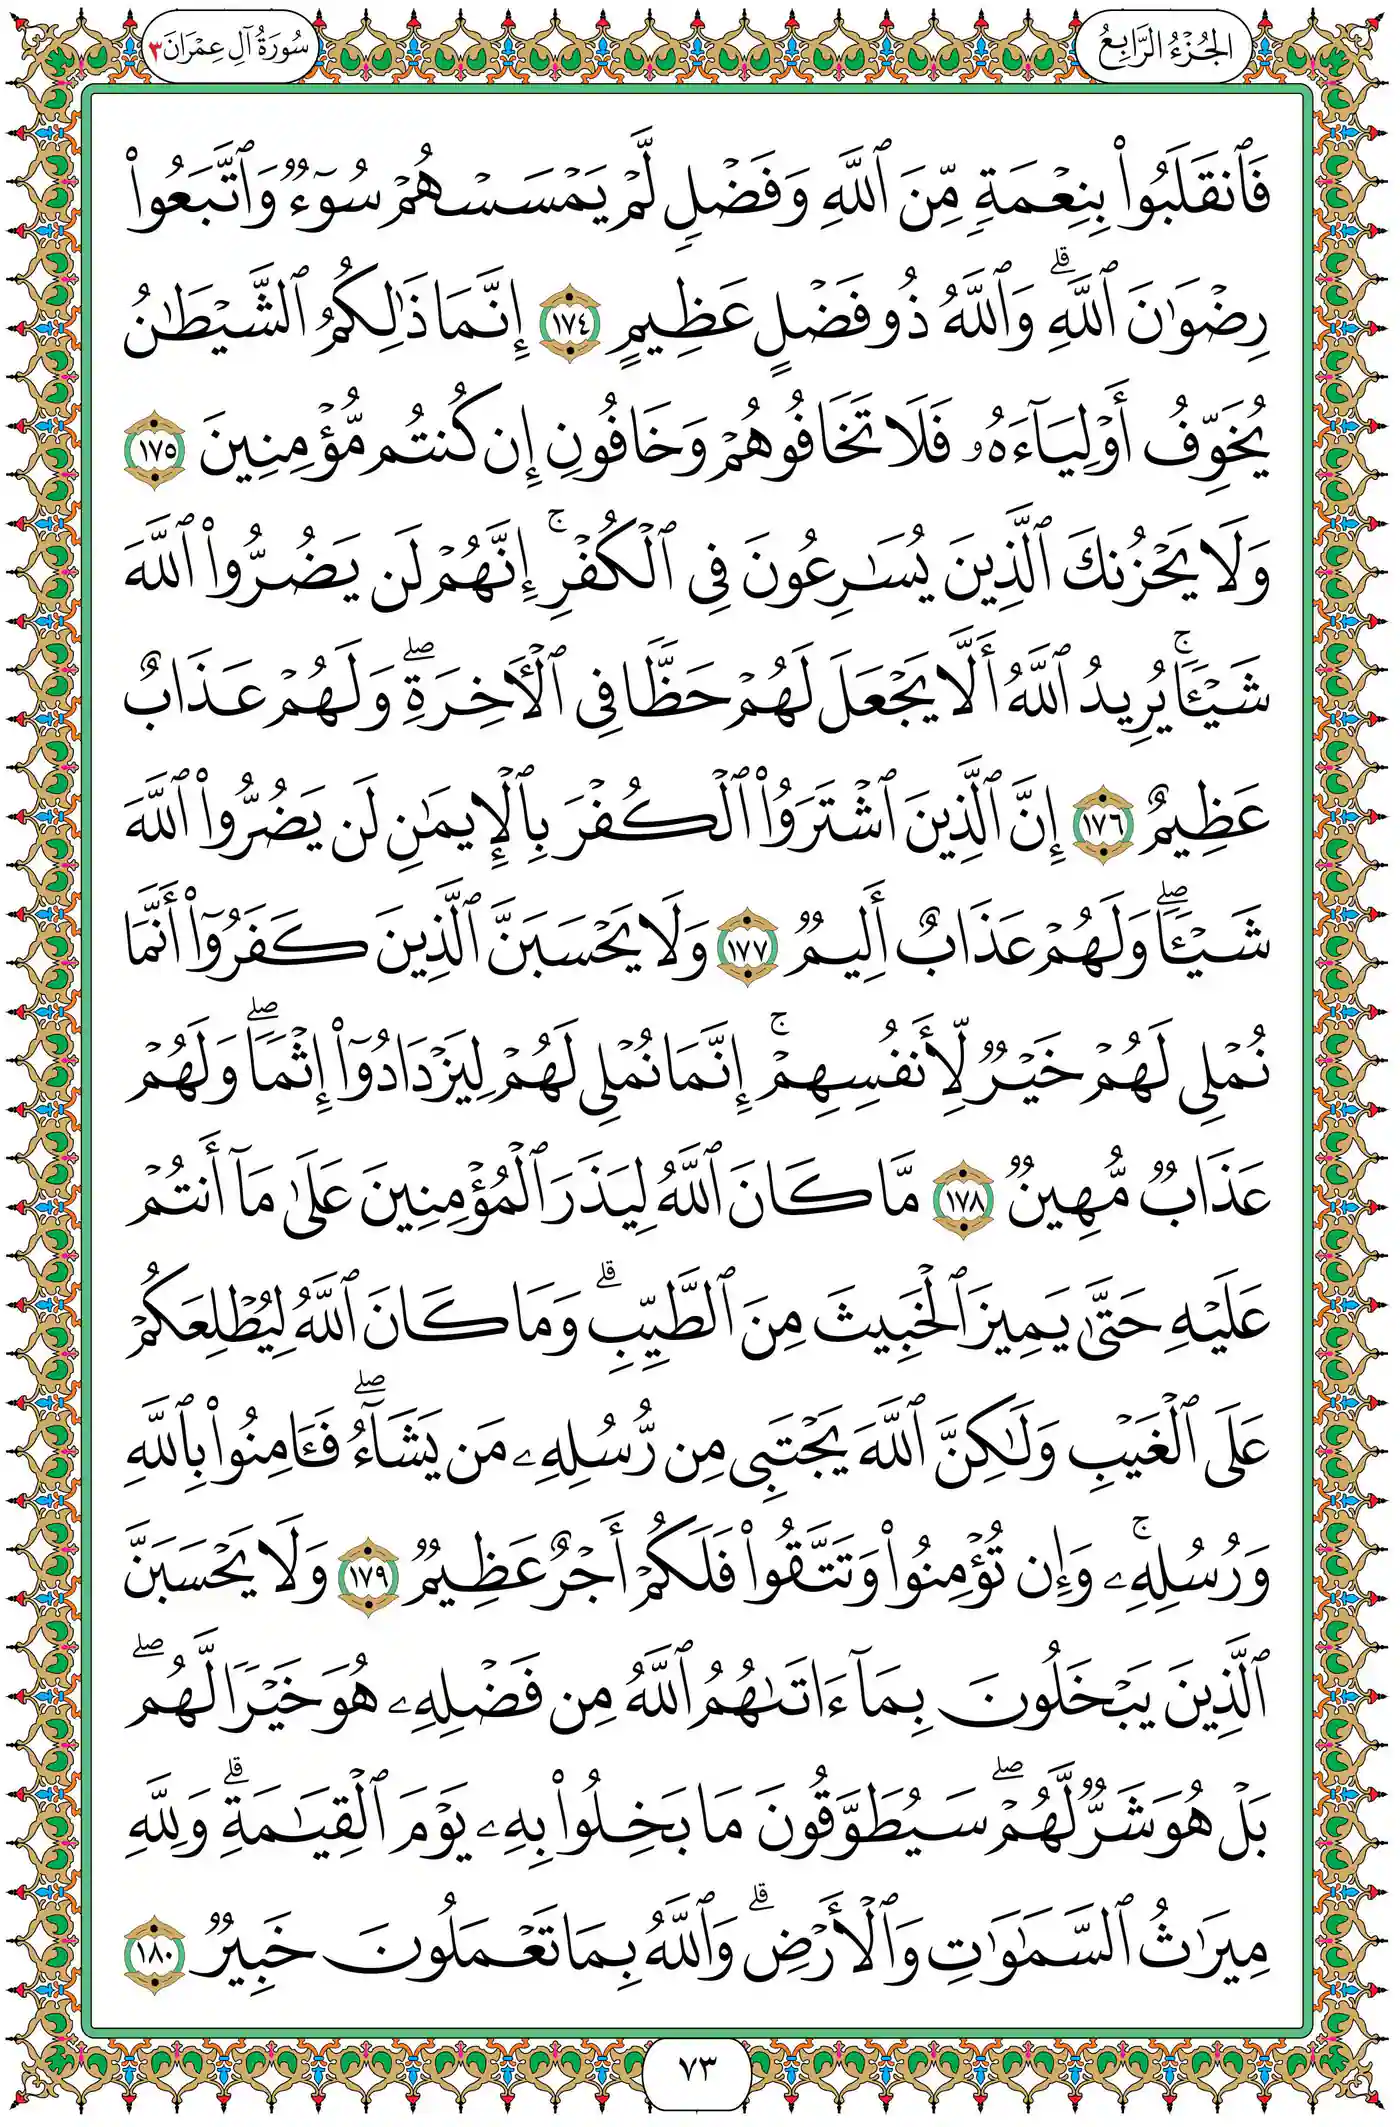 الجُزْءُ الرَّابِعُ
سُورَةُ آلِ عِمْرَانَ ٣
فَٱنقَلَبُوا۟ بِنِعْمَةٍ مِّنَ ٱللَّهِ وَفَضْلٍ لَّمْ يَمْسَسْهُمْ سُوٓءٌ وَٱتَّبَعُوا۟
رِضْوَٰنَ ٱللَّهِ ۗ وَٱللَّهُ ذُو فَضْلٍ عَظِيمٍ ١٧٤ إِنَّمَا ذَٰلِكُمُ ٱلشَّيْطَٰنُ
يُخَوِّفُ أَوْلِيَآءَهُۥ فَلَا تَخَافُوهُمْ وَخَافُونِ إِن كُنتُم مُّؤْمِنِينَ ١٧٥
وَلَا يَحْزُنكَ ٱلَّذِينَ يُسَٰرِعُونَ فِى ٱلْكُفْرِ ۚ إِنَّهُمْ لَن يَضُرُّوا۟ ٱللَّهَ
شَيْـًٔا ۗ يُرِيدُ ٱللَّهُ أَلَّا يَجْعَلَ لَهُمْ حَظًّا فِى ٱلْـَٔاخِرَةِ ۖ وَلَهُمْ عَذَابٌ
عَظِيمٌ ١٧٦ إِنَّ ٱلَّذِينَ ٱشْتَرَوُا۟ ٱلْكُفْرَ بِٱلْإِيمَٰنِ لَن يَضُرُّوا۟ ٱللَّهَ
شَيْـًٔا ۖ وَلَهُمْ عَذَابٌ أَلِيمٌ ١٧٧ وَلَا يَحْسَبَنَّ ٱلَّذِينَ كَفَرُوٓا۟ أَنَّمَا
نُمْلِى لَهُمْ خَيْرٌ لِّأَنفُسِهِمْ ۚ إِنَّمَا نُمْلِى لَهُمْ لِيَزْدَادُوٓا۟ إِثْمًا ۖ وَلَهُمْ
عَذَابٌ مُّهِينٌ ١٧٨ مَّا كَانَ ٱللَّهُ لِيَذَرَ ٱلْمُؤْمِنِينَ عَلَىٰ مَآ أَنتُمْ
عَلَيْهِ حَتَّىٰ يَمِيزَ ٱلْخَبِيثَ مِنَ ٱلطَّيِّبِ ۗ وَمَا كَانَ ٱللَّهُ لِيُطْلِعَكُمْ
عَلَى ٱلْغَيْبِ وَلَٰكِنَّ ٱللَّهَ يَجْتَبِى مِن رُّسُلِهِۦ مَن يَشَآءُ ۖ فَـَٔامِنُوا۟ بِٱللَّهِ
وَرُسُلِهِۦ ۚ وَإِن تُؤْمِنُوا۟ وَتَتَّقُوا۟ فَلَكُمْ أَجْرٌ عَظِيمٌ ١٧٩ وَلَا يَحْسَبَنَّ
ٱلَّذِينَ يَبْخَلُونَ بِمَآ ءَاتَىٰهُمُ ٱللَّهُ مِن فَضْلِهِۦ هُوَ خَيْرًا لَّهُم ۖ
بَلْ هُوَ شَرٌّ لَّهُمْ ۖ سَيُطَوَّقُونَ مَا بَخِلُوا۟ بِهِۦ يَوْمَ ٱلْقِيَٰمَةِ ۗ وَلِلَّهِ
مِيرَٰثُ ٱلسَّمَٰوَٰتِ وَٱلْأَرْضِ ۗ وَٱللَّهُ بِمَا تَعْمَلُونَ خَبِيرٌ ١٨٠
٧٣